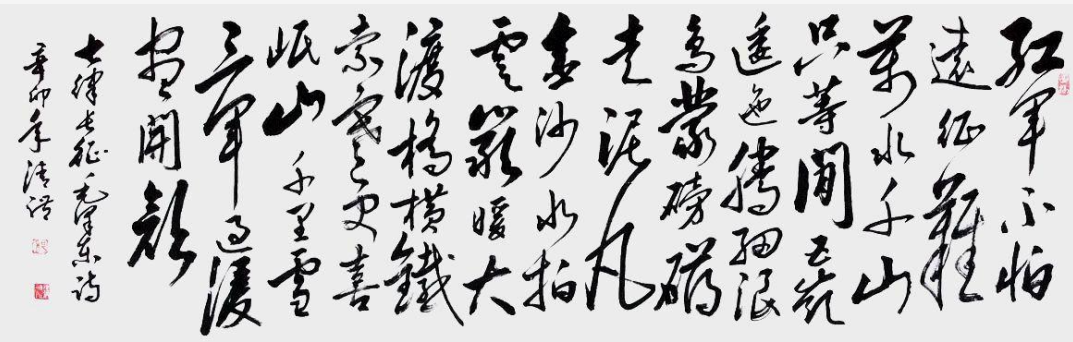 红军不怕
遠征難
萬水千山
只等閒五岭
逶迤騰細浪
烏蒙磅礴
走泥丸
金沙水拍
雲巖暖大
渡橋橫鐵
索寒更喜
岷山千里雪
三軍過後
盡開顏
七律长征毛澤东詩
辛卯年清